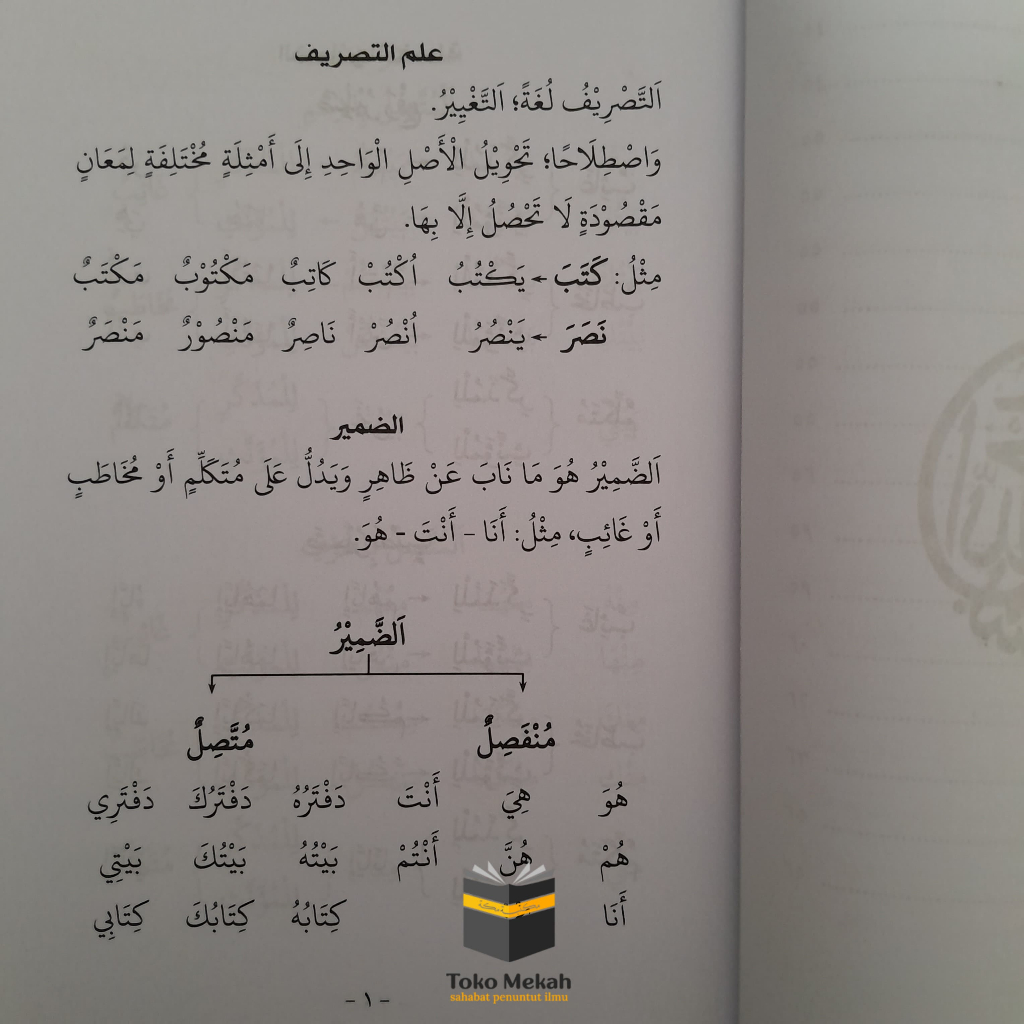 علم التصريف
اَلتَّصْرِيْفُ لُغَةً؛ اَلتَّغْيِيْرُ.
وَاصْطِلَاحًا؛ تَحْوِيْلُ الْأَصْلِ الْوَاحِدِ إِلَى أَمْثِلَةٍ مُخْتَلِفَةٍ لِمَعَانٍ
مَقْصُوْدَةٍ لَا تَحْصُلُ إِلَّا بِهَا.
مِثْلُ: كَتَبَ ← يَكْتُبُ اُكْتُبْ كَاتِبٌ مَكْتُوْبٌ مَكْتَبٌ
نَصَرَ ← يَنْصُرُ اُنْصُرْ نَاصِرٌ مَنْصُوْرٌ مَنْصَرٌ
الضمير
اَلضَّمِيْرُ هُوَ مَا نَابَ عَنْ ظَاهِرٍ وَيَدُلُّ عَلَى مُتَكَلِّمٍ أَوْ مُخَاطَبٍ
أَوْ غَائِبٍ، مِثْلُ: أَنَا – أَنْتَ - هُوَ.
اَلضَّمِيْرُ
مُنْفَصِلٌ مُتَّصِلٌ
هُوَ هِيَ أَنْتَ دَفْتَرُهُ دَفْتَرُكَ دَفْتَرِي
هُمْ هُنَّ أَنْتُمْ بَيْتُهُ بَيْتُكَ بَيْتِي
أَنَا كِتَابُهُ كِتَابُكَ كِتَابِي
Toko Mekah
sahabat penuntut ilmu
- ١ -